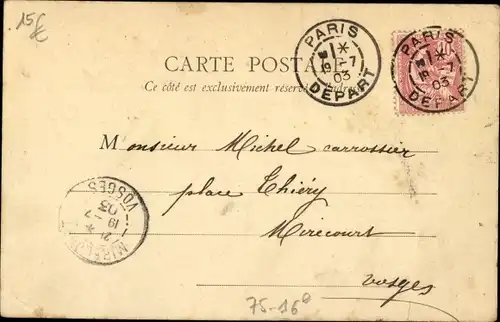 15€
PARIS
19 -7
03
DEPART
PARIS
19 -7
03
DEPART
10
CARTE POSTA
Ce côté est exclusivement réservé
Monsieur Michel carrossier
place Thiéry
Mirecourt
Vosges
VOSGES
03
19 -7
75-16e